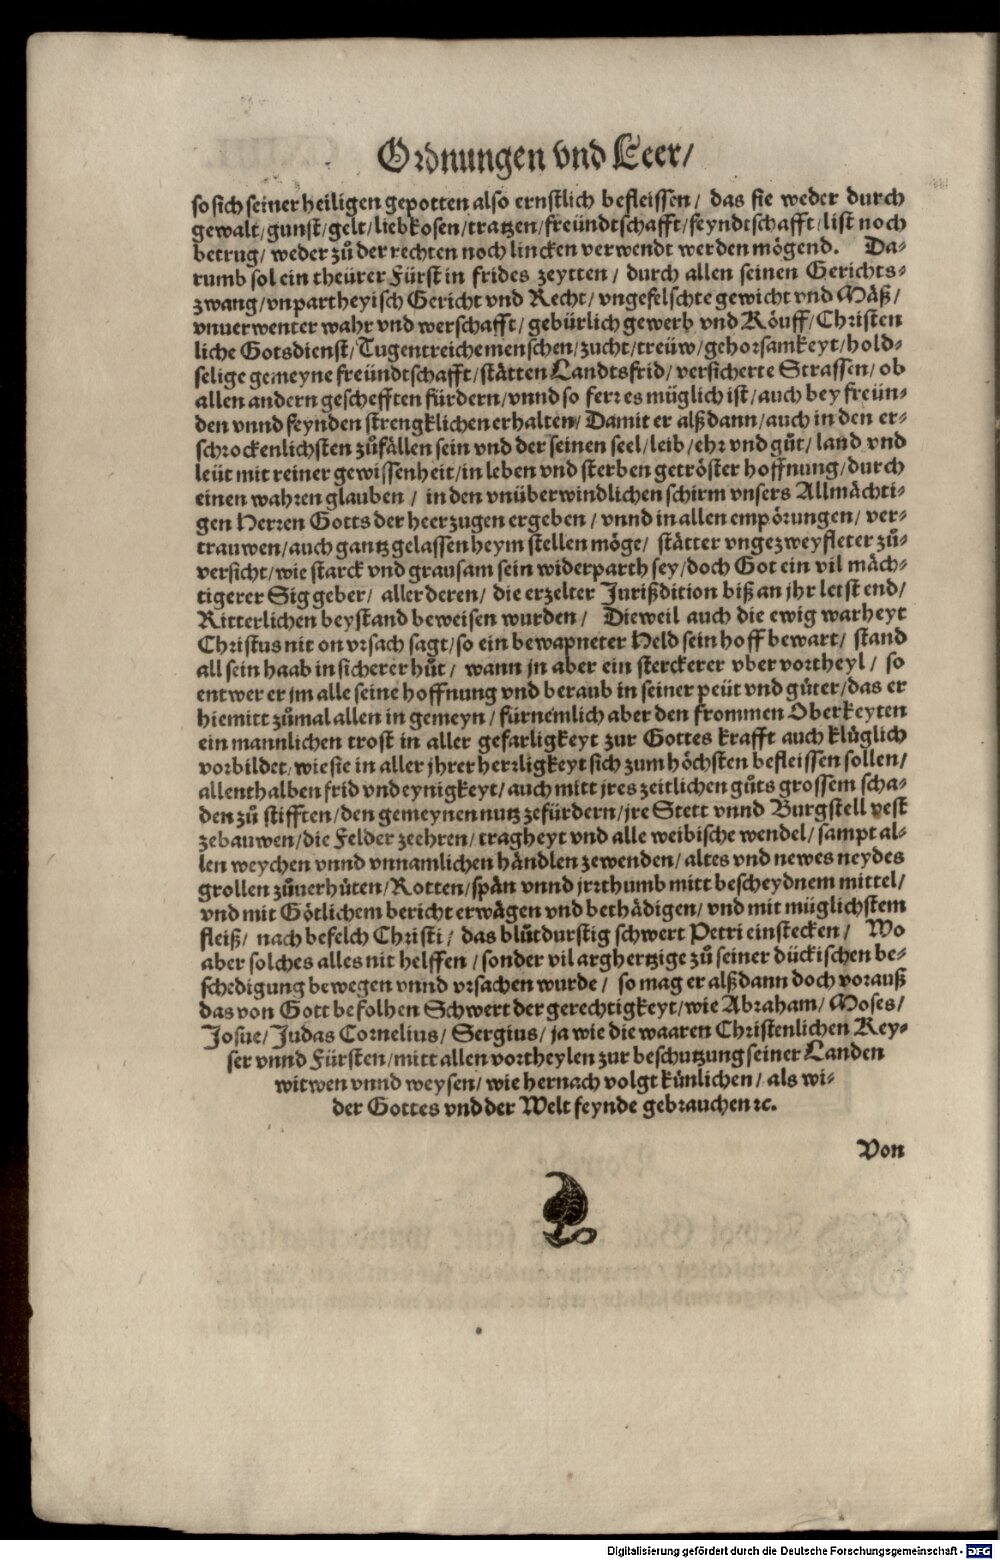 Ordnungen vnd Leer/
so sich seiner heiligen gepotten also ernstlich befleissen/ das sie weder durch
gewalt/gunst/gelt/liebkosen/tratzen/freündtschafft/feyndtschafft/list noch
betrug/ weder zů der rechten noch lincken verwendt werden mögend. Da-
rumb sol ein theürer Fürst in frides zeytten/ durch allen seinen Gerichts-
zwang/vnpartheyisch Gericht vnd Recht/ vngefelschte gewicht vnd Mäß/
vnuerwenter wahr vnd werschafft/ gebürlich gewerb vnd Köuff/Christen
liche Gotsdienst/Tugentreiche menschen/zucht/treüw/gehorsamkeyt/hold-
selige gemeyne freündtschafft/stätten Landtsfrid/ versicherte Strassen/ ob
allen andern geschefften fürdern/vnnd so ferr es müglich ist/auch bey freün-
den vnnd feynden strengklichen erhalten/ Damit er alßdann/auch in den er-
schrockenlichsten zůfällen sein vnd der seinen seel/leib/ehr vnd gůt/ land vnd
leüt mit reiner gewissenheit/in leben vnd sterben getröster hoffnung/durch
einen wahren glauben/ in den vnüberwindlichen schirm vnsers Allmächti-
gen Herren Gotts der heerzugen ergeben/ vnnd in allen empörungen/ ver-
trauwen/auch gantz gelassen heym stellen möge/ stätter vngezweyfleter zů-
versicht/wie starck vnd grausam sein widerparth sey/doch Got ein vil mäch-
tigerer Sig geber/ aller deren/ die erzelter Jurißdition biß an jhr letst end/
Ritterlichen beystand beweisen wurden/ Dieweil auch die ewig warheyt
Christus nit on vrsach sagt/so ein bewapneter Held sein hoff bewart/ stand
all sein haab in sicherer hůt/ wann jn aber ein sterckerer vber vortheyl/ so
entwer er jm alle seine hoffnung vnd beraub in seiner peüt vnd güter/das er
hiemitt zůmal allen in gemeyn/ fürnemlich aber den frommen Oberkeyten
ein mannlichen trost in aller gefarligkeyt zur Gottes krafft auch klůglich
vorbildet/wie sie in aller jhrer herrligkeyt sich zum höchsten befleissen sollen/
allenthalben frid vnd eynigkeyt/auch mitt jres zeitlichen gůts grossem scha-
den zů stifften/den gemeynen nutz zefürdern/jre Stett vnnd Burgstell vest
zebauwen/die Felder zeehren/ tragheyt vnd alle weibische wendel/ sampt al-
len weychen vnnd vnnamlichen händlen zewenden/ altes vnd newes neydes
grollen zůuerhüten/Rotten/spän vnnd jrrthumb mitt bescheydnem mittel/
vnd mit Götlichem bericht erwägen vnd bethädigen/ vnd mit müglichstem
fleiß/ nach befelch Christi/ das blůtdurstig schwert Petri einstecken/ Wo
aber solches alles nit helffen/sonder vil arghertzige zů seiner dückischen be-
schedigung bewegen vnnd vrsachen wurde/ so mag er alßdann doch vorauß
das von Gott befolhen Schwert der gerechtigkeyt/wie Abraham/ Moses/
Josue/ Judas Cornelius/ Sergius/ ja wie die waaren Christenlichen Key-
ser vnnd Fürsten/mitt allen vortheylen zur beschutzung seiner Landen
witwen vnnd weysen/ wie hernach volgt künlichen/ als wi-
der Gottes vnd der Welt feynde gebrauchen ꝛc.
Von
Digitalisierung gefördert durch die Deutsche Forschungsgemeinschaft - DFG